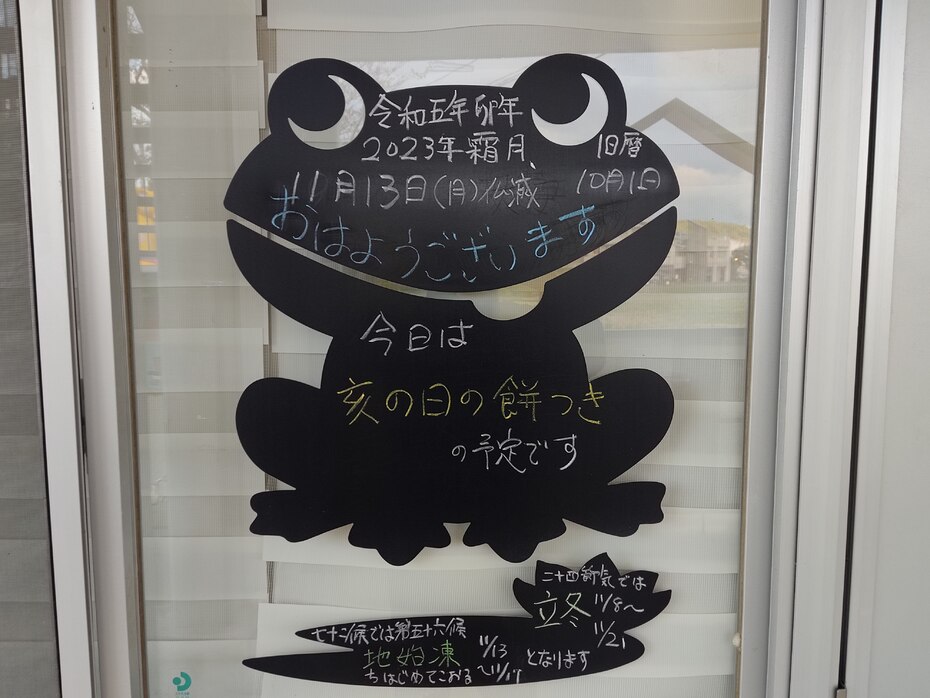 令和五年卯年
2023年霜月 旧暦
11月13日(月)仏滅 10月1日
おはようございます
今日は
亥の日の餅つき
の予定です
二十四節気では
立冬 11/8〜
11/21
七十二候では第五十六候
地始凍 11/13
ちはじめてこおる 〜11/17 となります